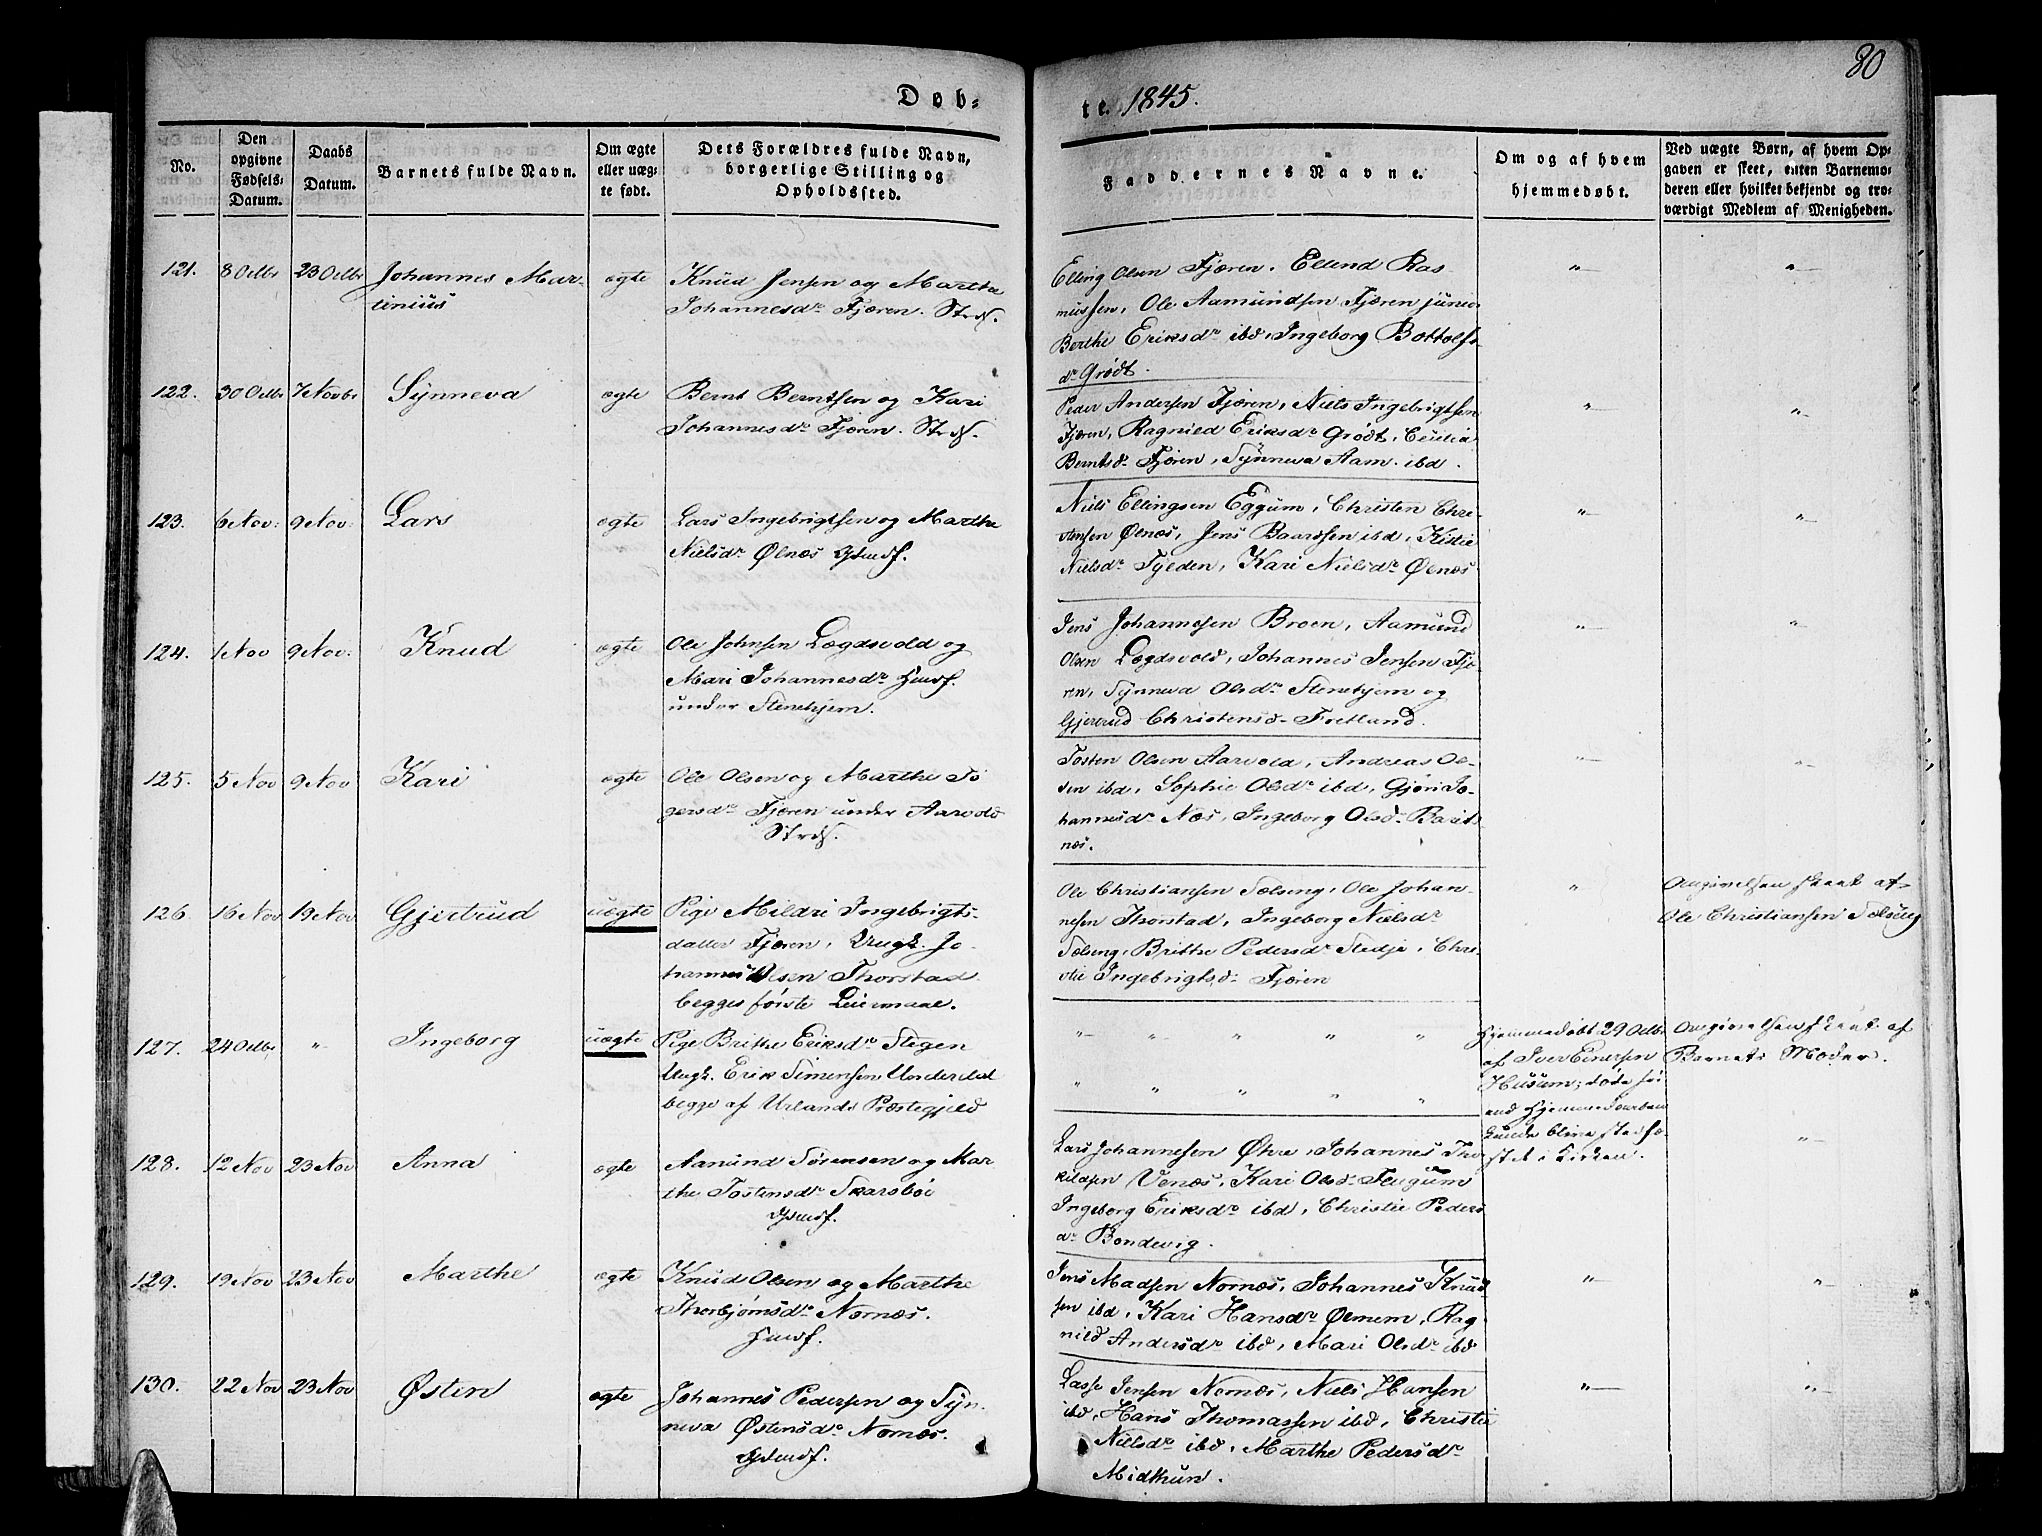 80
Døb-
te. 1845.
No.
Den opgivne Fødsels-Datum.
Daabs Datum.
Barnets fulde Navn.
Om ægte eller uæg-te født.
Dets Forældres fulde Navn, borgerlige Stilling og Opholdssted.
Faddernes Navne.
Om og af hvem hjemmedøbt.
Ved uægte Børn, af hvem Op-gaven er skeet, enten Barnemo-deren eller hvilket bekjendt og tro-værdigt Medlem af Menigheden.
121. 8 Octbr 23 Octbr Johannes Mar-
tinius
ægte
Knud Jensen og Marthe
Johannesdr Fjæren. Strds.
Elling Olsen Fjæren. Ellend Ras-
mussen, Ole Aamundsen Fjæren junior
Berthe Eriksdr ibd, Ingeborg Bottolfs-
dr Grødt.
122. 30 Octbr 7 Novbr Synneva
ægte
Bernt Berntsen og Kari
Johannesdr Fjæren. Strds.
Peder Andersen Fjæren, Niels Ingebrigtsen
Fjæren, Ragnild Eriksdr Grødt, Cecilia
Berntsdr Fjæren, Synneva Aam. ibd.
123. 6 Nov: 9 Nov: Lars
ægte
Lars Ingebrigtsen og Marthe
Nielsdr Ølnæs Gmdf.
Niels Ellingsen Eggum, Christen Chri-
stensen Ølnæs, Jens Baardsen ibd, Kistie
Nielsdr Fylden, Kari Nielsdr Ølnæs
124. 1 Nov 9 Nov: Knud
ægte
Ole Johnsen Lægdsvold og
Mari Johannesdr Husf.
under Stenehjem.
Jens Johannesen Broen, Aamund
Olsen Lægdsvold, Johannes Jensen Fjæ-
ren, Synneva Olsdr Stenehjem og
Gjertrud Christensdr Fretland.
125. 5 Nov 9 Nov Kari
ægte
Ole Olsen og Marthe To
gersdr Fjæren under Aarvold
Strds.
Tosten Olsen Aarvold, Andreas Ol-
sen ibd, Sophie Olsdr ibd, Gjøri Jo-
hannesdr Næs, Ingeborg Olsdr Barits
næs.
126 16 Nov 19 Nov Gjertrud
uægte
Pige Mildri Ingebrigts-
datter Fjæren, Ungk. Jo-
hannes Olsen Thorstad
begges første Leiermaal.
Ole Christiansen Sælseng, Ole Johan-
nesen Thorstad, Ingeborg Nielsdr
Sælseng, Brithe Pedersdr Stedje, Chri-
stie Ingebrigtsdr Fjæren
Angivelsen skeet af
Ole Christiansen Sælseng
127. 24 Octbr " Ingeborg
uægte
Pige Brithe Eriksdr Stegen
Ungk. Erik Simensen Underdal
begge af Urlands Præstegjeld
Hjemmedøbt 29 Octbr
af Iver Einersen
Husum; døde før
end Hjemmedaaben
kunde blive stadfæ-
stet i Kirken.
Angivelsen skeet af
Barnets Moder.
128. 12 Nov 23 Nov Anna
ægte
Aamund Sørensen og Mar
the Tostensdr Skarsbøe
Gmdf.
Lars Johannesen Øhre, Johannes Thor
kildsen Venæs, Kari Olsdr Flugum
Ingeborg Eriksdr ibd, Christie Peders
dr Bondevig.
129. 19 Nov 23 Nov Marthe
ægte
Knud Olsen og Marthe
Thorbjørnsdr Nornæs.
Husf.
Jens Madsen Nornæs, Johannes Knud
sen ibd, Kari Hansdr Ølmem, Rag-
nild Andersdr ibd, Mari Olsdr ibd
130. 22 Nov 23 Nov Østen
ægte
Johannes Pedersen og Syn-
neva Østensdr Nornæs.
Gmdf.
Lasse Jensen Nornæs, Niels Hansen
ibd, Hans Thomassen ibd, Christie
Nielsdr ibd, Marthe Pedersdr
Midthun.